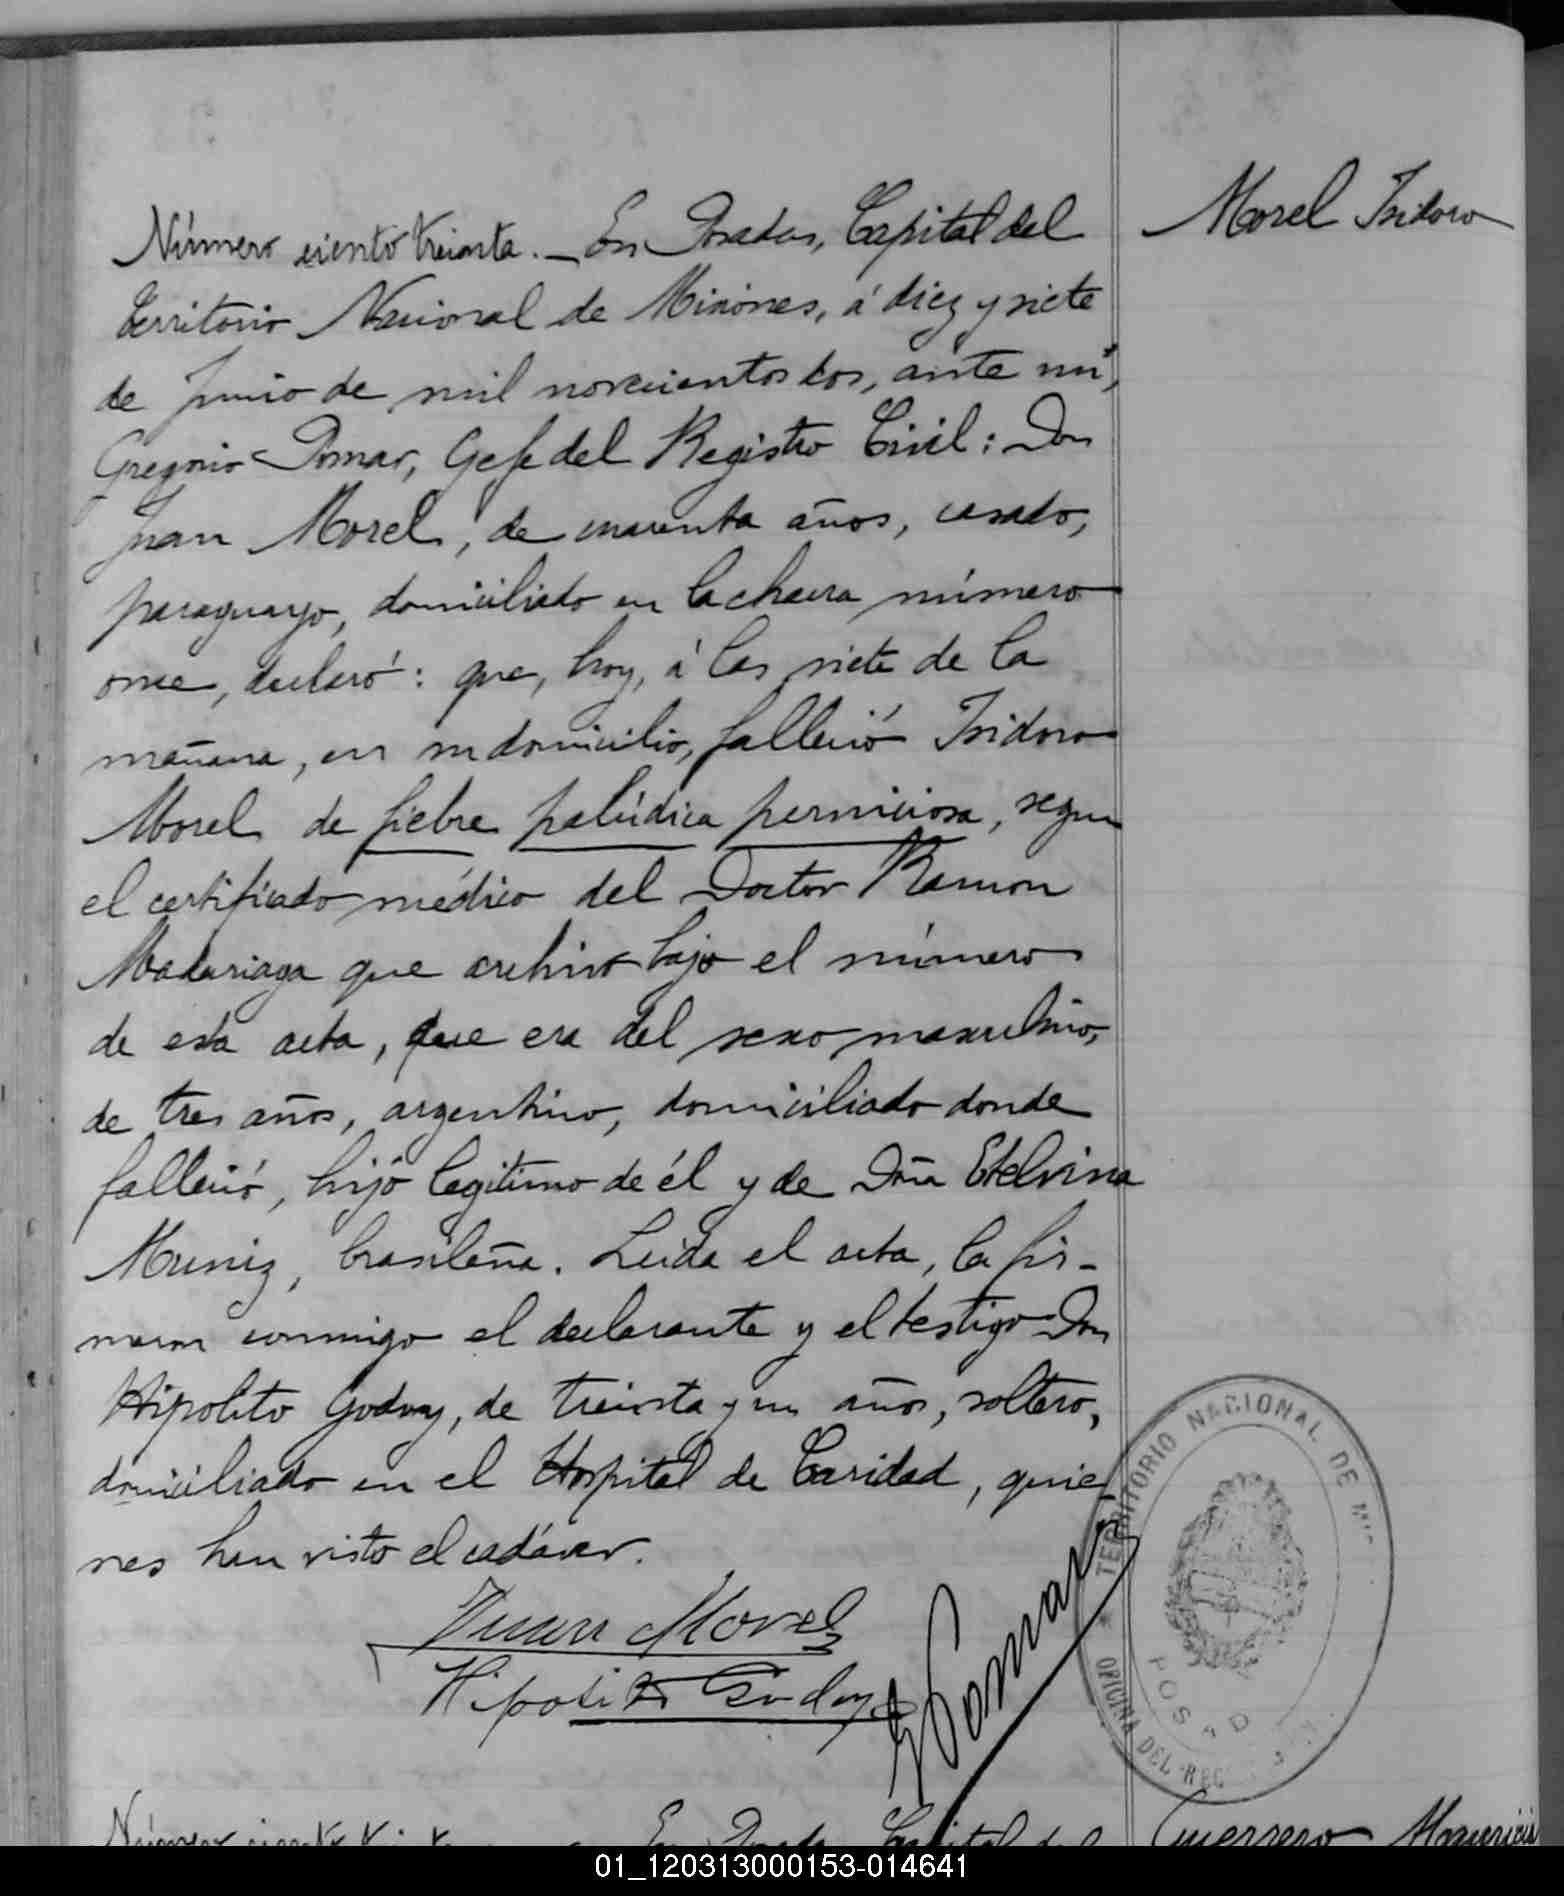 Morel Isidoro
Número ciento treinta. — En Posadas, Capital del
territorio Nacional de Misiones, á diez y siete
de Junio de mil novecientos dos, ante mí,
Gregorio Pomar, Gefe del Registro Civil: Don
Juan Morel, de cuarenta años, casado,
paraguayo, domiciliado en la chacra número
once, declaró: que, hoy, á las siete de la
mañana, en su domicilio, falleció Isidoro
Morel de fiebre palúdica perniciosa, segun
el certificado médico del Doctor Ramon
Madariaga que archivo bajo el número
de esta acta, que era del sexo masculino,
de tres años, argentino, domiciliado donde
falleció, hijo legitimo de él y de Dña Etelvina
Muniz, brasileña. Leida el acta, la fir-
maron conmigo el declarante y el testigo Don
Hipolito Godoy, de treinta y un años, soltero,
domiciliado en el Hospital de Caridad, quie-
nes han visto el cadáver.
Juan Morel
Hipolito Godoy
G Pomar
TERRITORIO NACIONAL DE MIS
OFICINA DEL REG
POSAD
Número ciento treinta En Posadas Capital del
Guerrero Mauricio
01_120313000153-014641